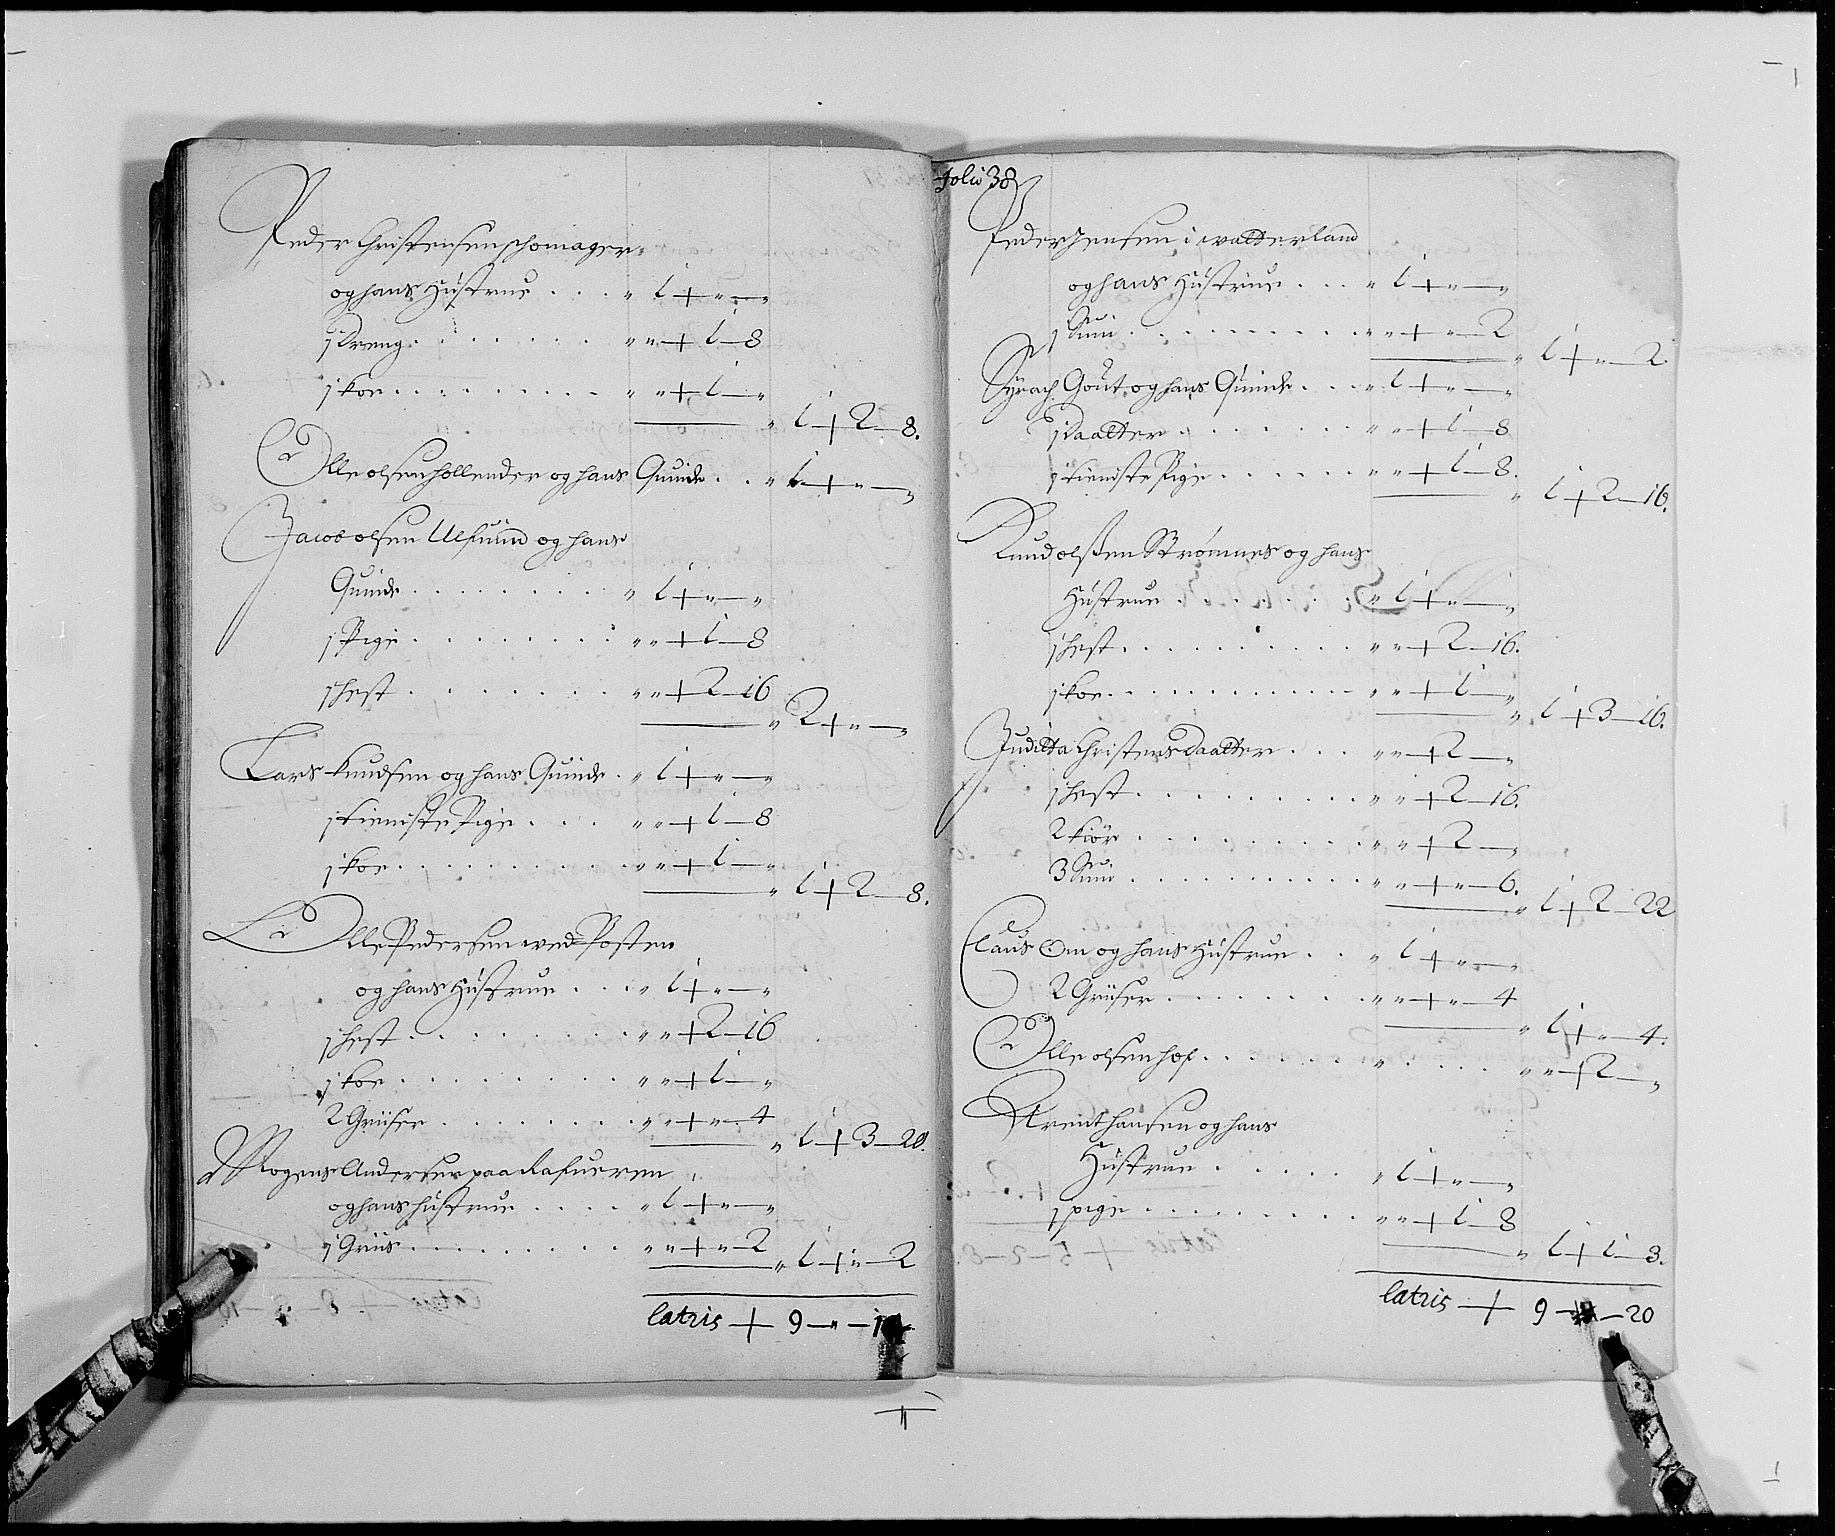 Peder Christensen schomager
og hans Hustrue . . . " 1 + " — "
1 Dreng . . . . . . . " " + 1 — 8
1 koe . . . . . . . . . " " + 1 — "
" 1 + 2 — 8.
Olle olsen hollender og hans Quinde . . " 1 + " — "
Jacob olsen Ulfsund og hans
Quinde . . . . . . . . . " 1 + " — "
1 Pige . . . . . . . . " " + 1 — 8
1 hest . . . . . . . . " " + 2 — 16
" 2 + " — "
Lars knudsen og hans Quinde . " 1 + " — "
1 tieniste Pige . . . " " + 1 — 8
1 koe . . . . . . . . . . " " + 1 — "
" 1 + 2 — 8.
Olle Pedersen wed Posten
og hans Hustrue . . . " 1 + " — "
1 hest . . . . . . . . " " + 2 — 16
1 koe . . . . . . . . " " + 1 — "
2 Griiser . . . . . . . . " " + " — 4
" 1 + 3 — 20.
Mogens Andersen paa
og hans hustrue . . . . " 1 + " — "
1 Griis . . . . . . . . . " " + " — 2
" 1 + " — 2
latris + 9 — " —
folio 38
Peder Jensen i watterland
og hans Hustrue . . . " 1 + " — "
1 Suin . . . . . . . . . . " " + " — 2
" 1 + " — 2.
Syrach Gout og hans Quinde . . . " 1 + " — "
1 Daatter . . . . . . " " + 1 — 8
1 tieniste Pige . . . . . . " " + 1 — 8.
" 1 + 2 — 16.
Knud olsßen Strømnes og hans
Hustrue . . . . . . . . " 1 + " — "
1 hest . . . . . . . . . . " " + 2 — 16.
1 koe . . . . . . . . . . . " " + 1 — "
" 1 + 3 — 16.
Juditta Christens Daatter . . . " " + 2 — "
1 hest . . . . . . . . . . " " + 2 — 16.
2 kiør . . . . . . . . . . " " + 2 — "
3 Suin . . . . . . . . . . . " " + " — 6.
" 1 + 2 — 22
Claus Om og hans Hustrue . . " 1 + " — "
2 Griiser . . . . . . . " " + " — 4
" 1 + " — 4.
Olle olsen hof . . . . . . . " . . . . " " + 2 — "
Arent hansen og hans
Hustrue . . . . . " 1 + " — "
1 pige . . . . . . . . . " " + 1 — 8
" 1 + 1 — 8.
latris — + 9 — — 20